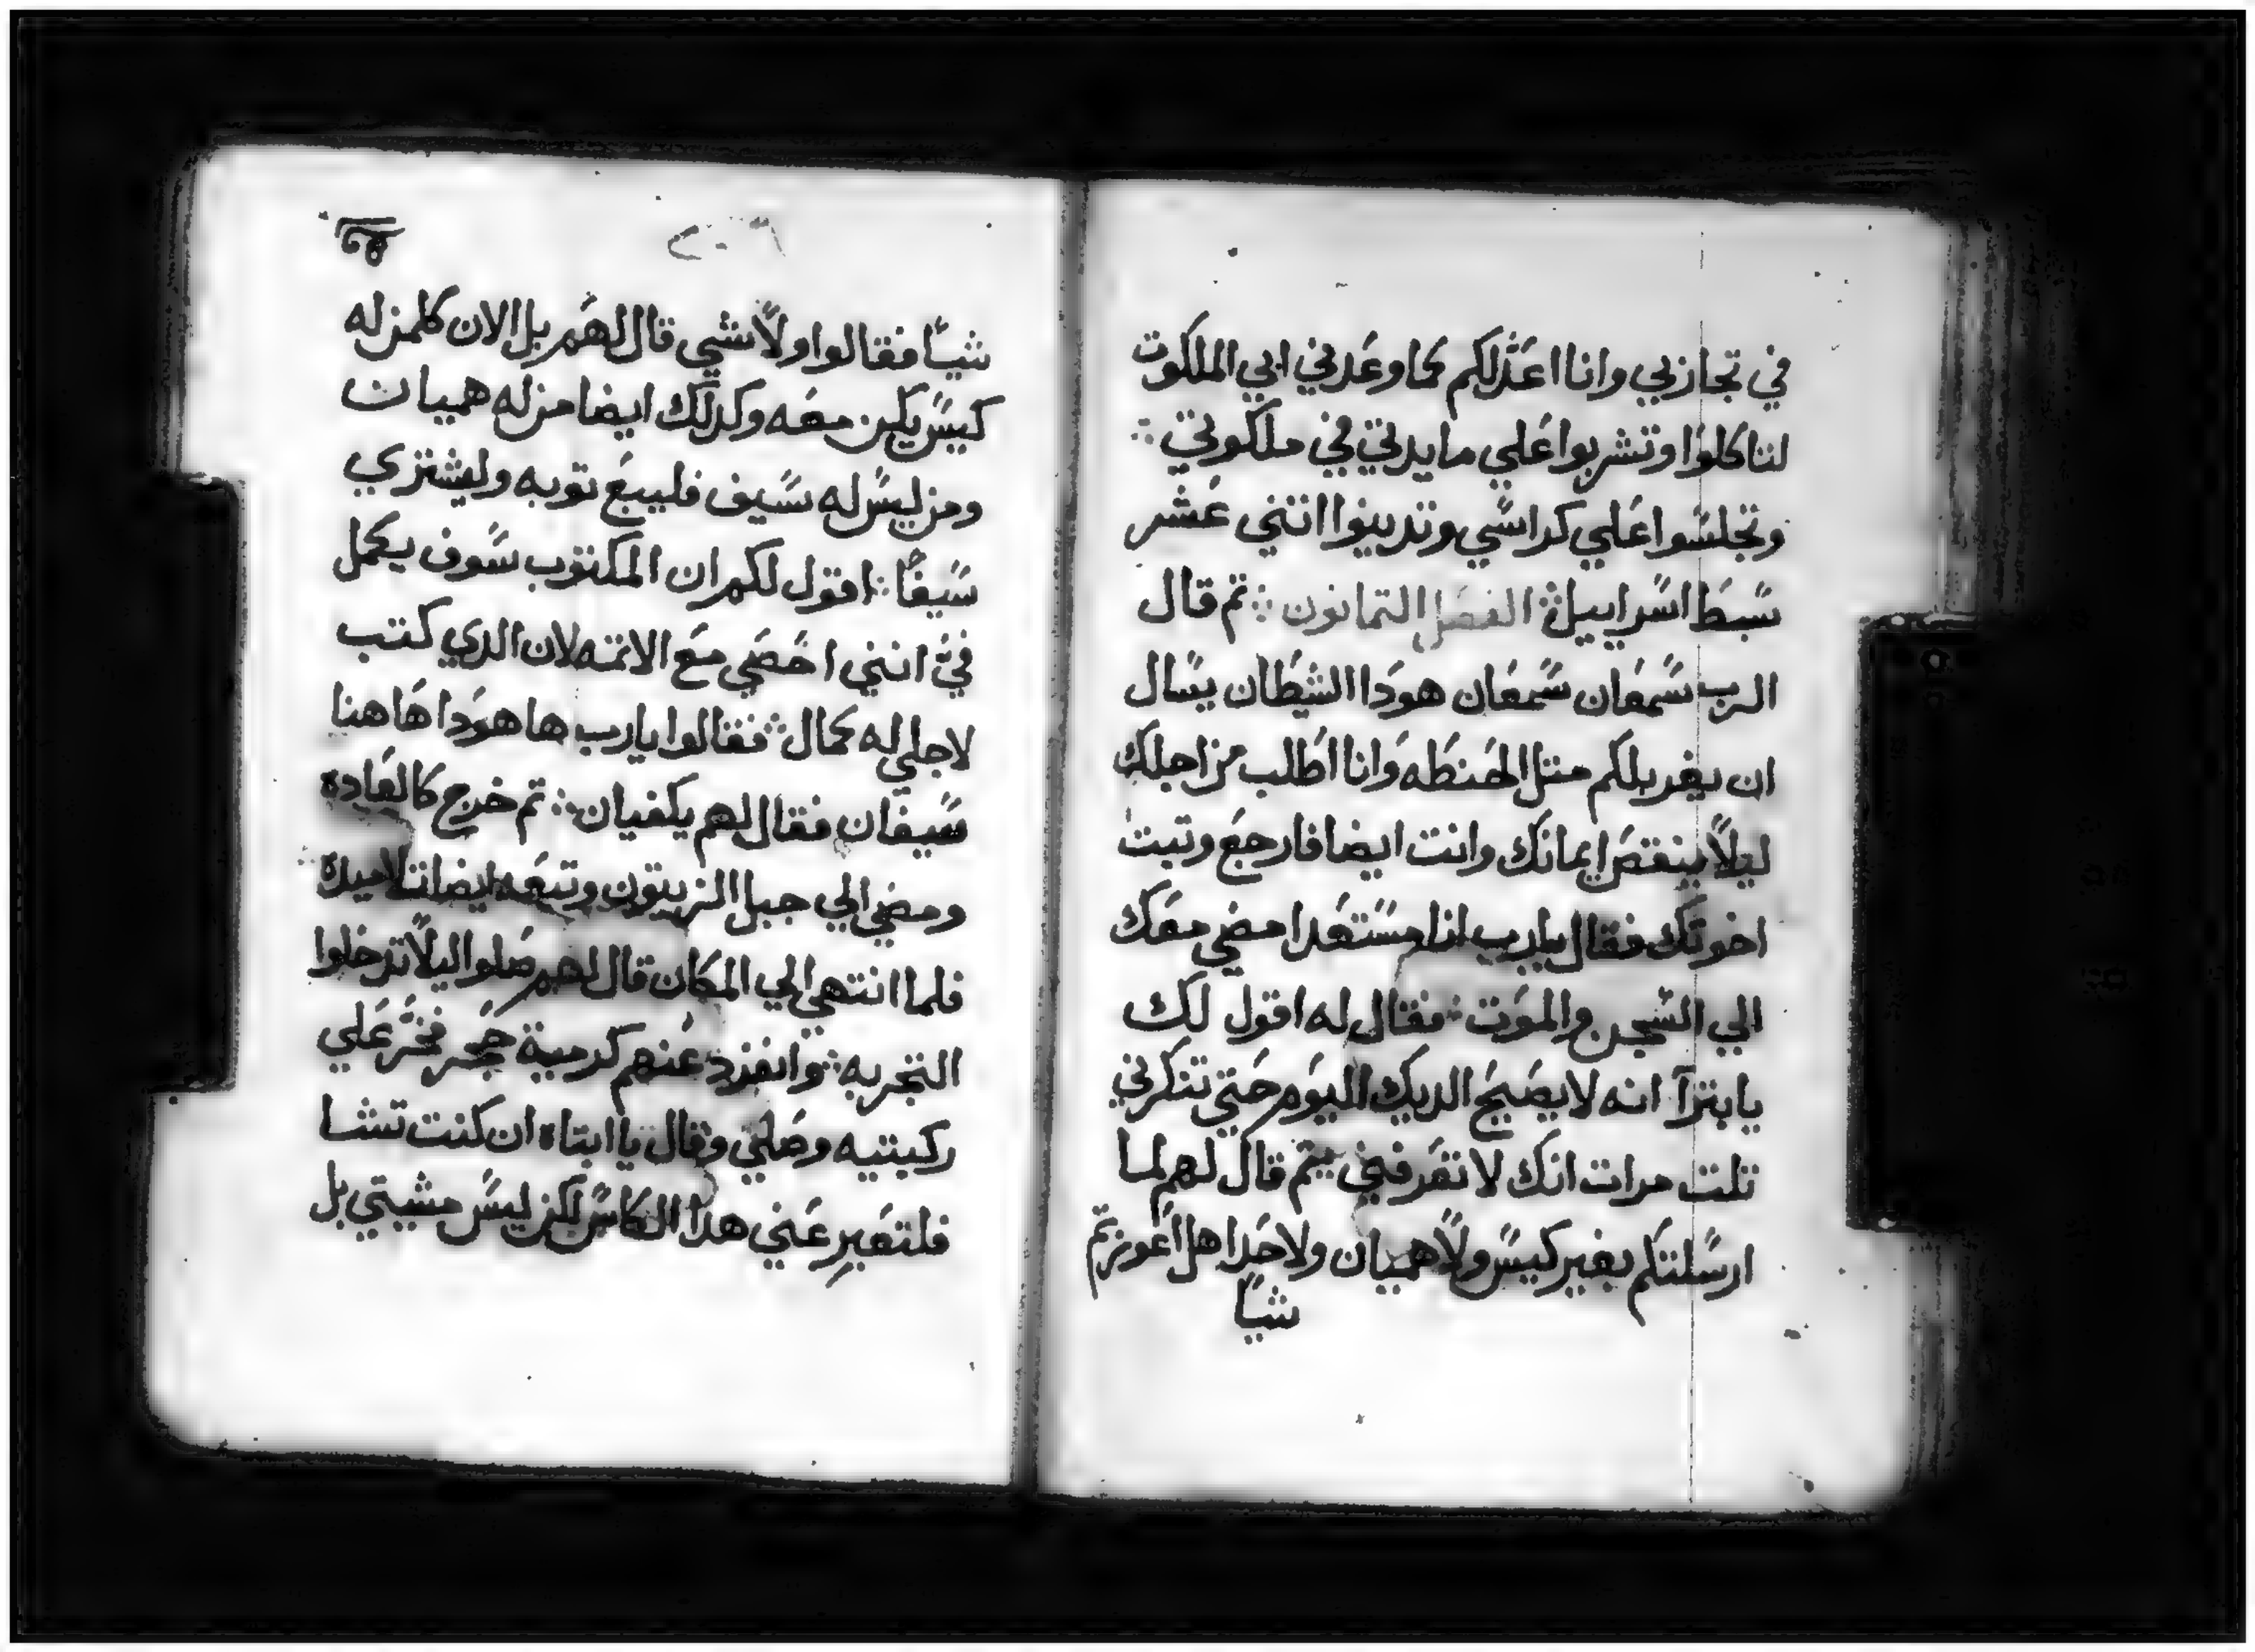 في تجاربي وانا اعدلكم كما وعدني ابي الملكوت
لتاكلوا وتشربوا علي مايدتي في ملكوتي ⁘
وتجلسوا علي كراسي وتدينوا اثني عشر
سبط اسراييل ⁘ الفصل التمانون ⁘ تم قال
الرب سمعان سمعان هودا الشيطان يسال
ان يغربلكم متل الحنطه وانا اطلب من اجلك
ليلا ينقص ايمانك وانت ايضا فارجع وتبت
اخوتك فقال يارب انا مستعد امضي معك
الي السجن والموت ⁘ فقال له اقول لك
يا بترا انه لا يصيح الديك اليوم حتي تنكرني
تلت مرات انك لا تعرفني تم قال لهم لما
ارسلتكم بغير كيس ولا هميان ولا حدا هل اعوزتم
شيا
٢٠٦
شيا فقالوا ولا شي قال لهم بل الان كلمن له
كيس يكن معه وكدلك ايضا من له هميان
ومن ليس له سيف فليبع توبه وليشتري
سيفا ⁘ اقول لكم ان المكتوب سوف يكمل
في انني احصي مع الاتمه لان الدي كتب
لاجلي له كمال ⁘ فقالوا يارب ها هودا هاهنا
سيفان فقال لهم يكفيان ⁘ تم خرج كالعاده
ومضي الي جبل الزيتون وتبعه ايضا تلاميده
فلما انتهي الي المكان قال لهم صلوا ليلا تدخلوا
التجربه ⁘ وانفرد عنهم كرمية حجر فخر علي
ركبتيه وصلي وقال يا ابتاه ان كنت تشا
فلتعبر عني هدا الكاس لكن ليس مشيتي بل